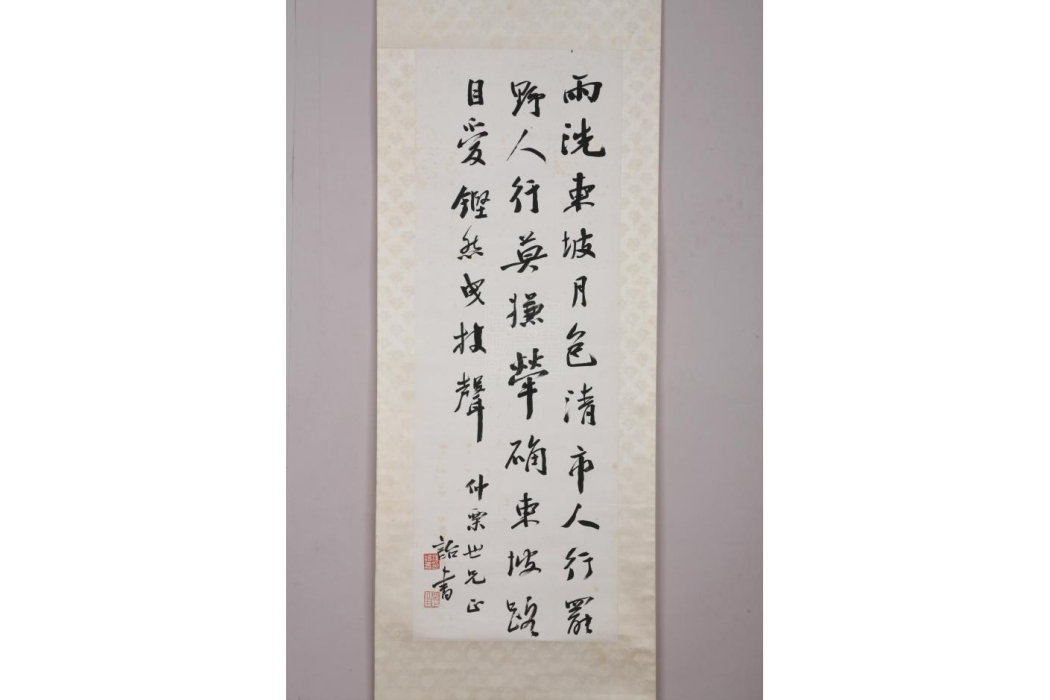 雨洗東坡月色清市人行罷
野人行莫嫌犖确東坡路
自愛鏗然曳杖聲
仲栗世兄正
詒書